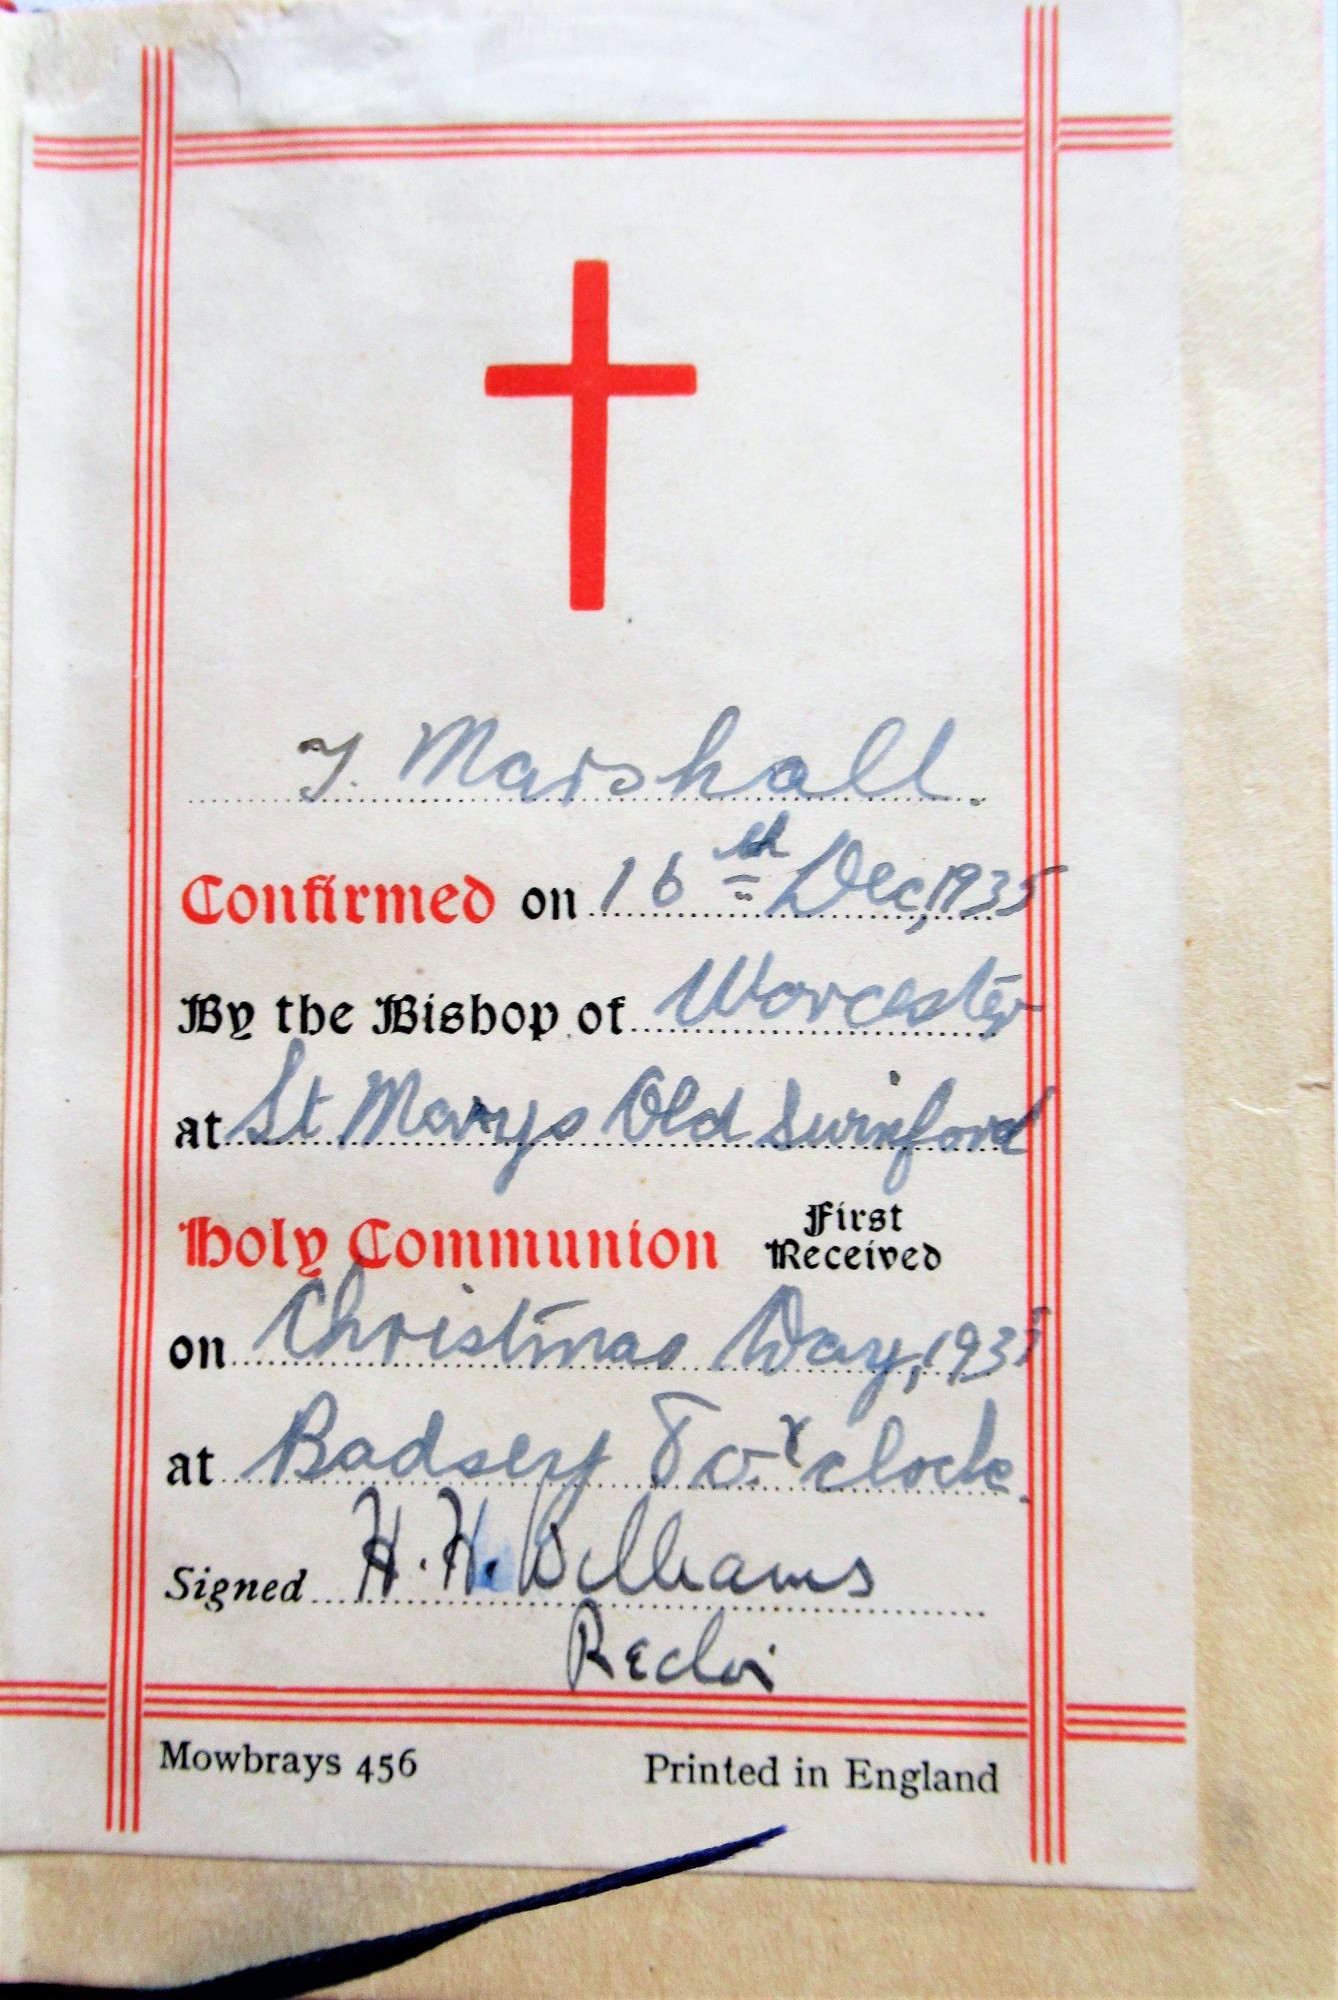 T. Marshall.
Confirmed on 16th Dec, 1935
By the Bishop of Worcester
at St Marys Old Swinford
Holy Communion First Received
on Christmas Day, 1935
at Badsey 8 o'clock.
Signed H. H. Williams
Rector
Mowbrays 456 Printed in England